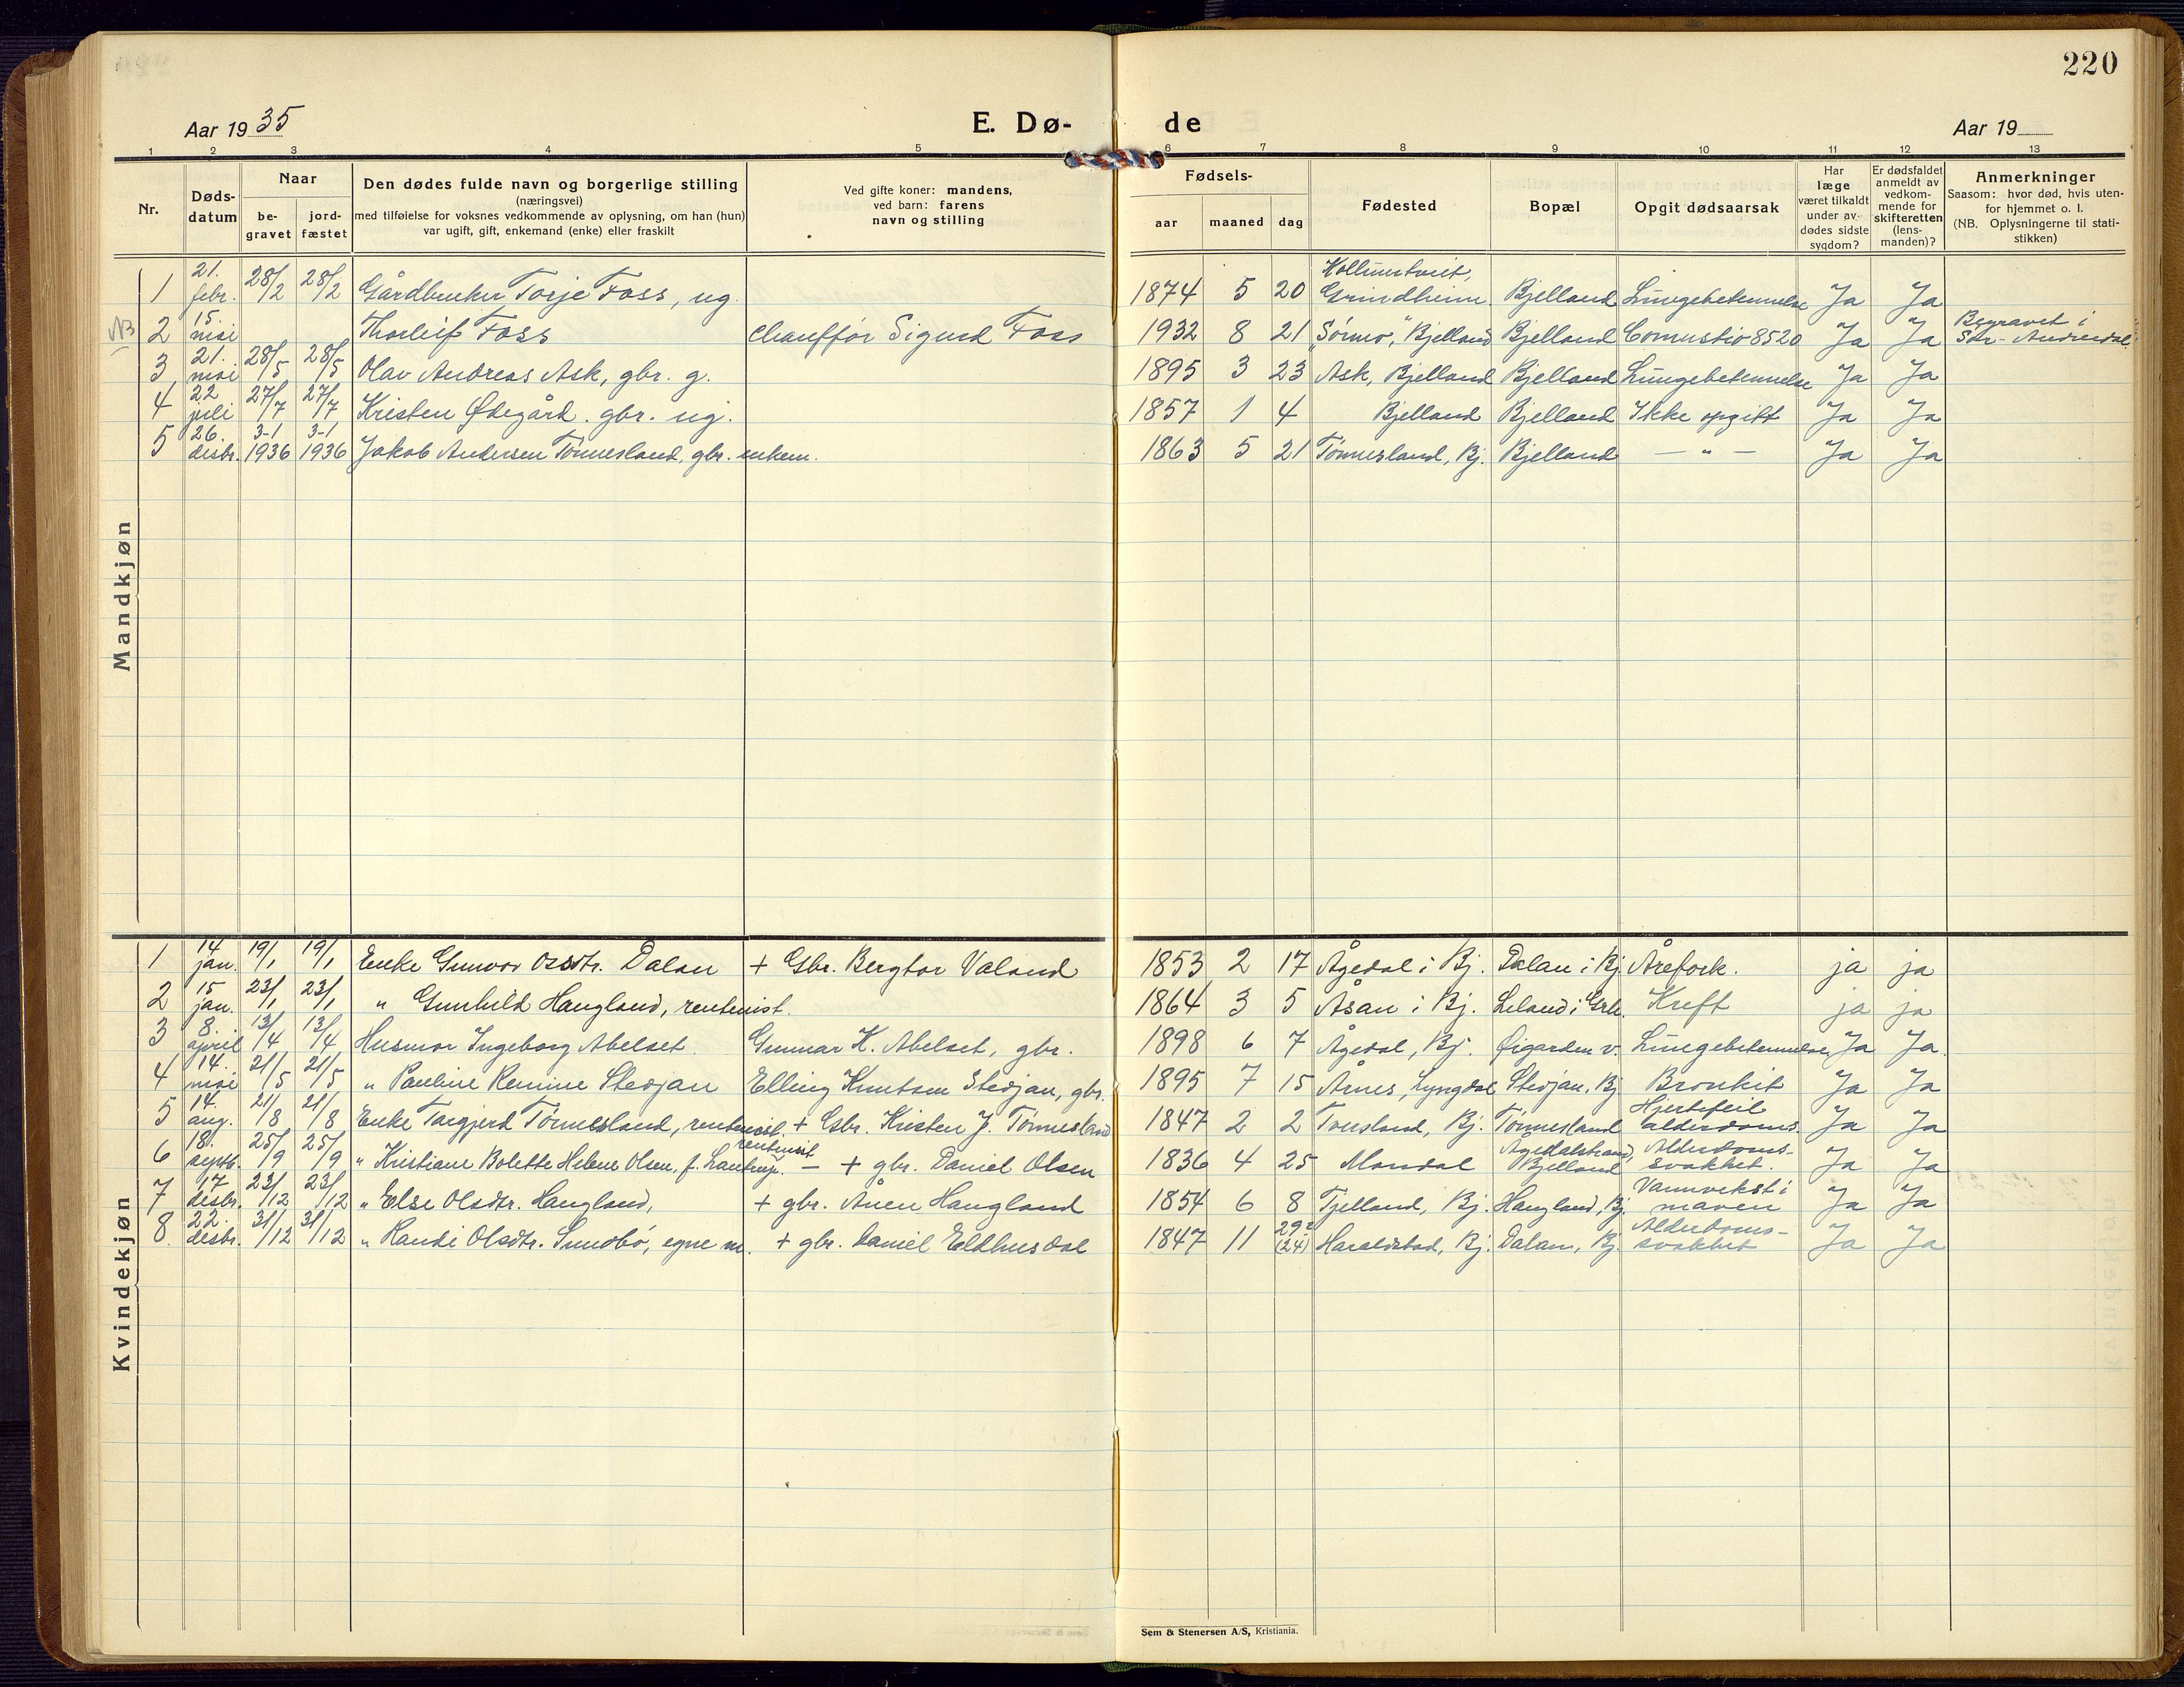 220
Aar 19 35
E. Dø-
de
Aar 19
1 2 3 4 5 6 7 8 9 10 11 12 13
Nr.
Døds-
datum
Naar
be-
gravet
jord-
fæstet
Den dødes fulde navn og borgerlige stilling
(næringsvei)
med tilføielse for voksnes vedkommende av oplysning, om han (hun)
var ugift, gift, enkemand (enke) eller fraskilt
Ved gifte koner: mandens,
ved barn: farens
navn og stilling
Fødsels-
aar maaned dag
Fødested
Bopæl
Opgit dødsaarsak
Har
læge
været tilkaldt
under av-
dødes sidste
sygdom?
Er dødsfaldet
anmeldt av
vedkom-
mende for
skifteretten
(lens-
manden)?
Anmerkninger
Saasom: hvor død, hvis uten-
for hjemmet o. l.
(NB. Oplysningerne til stati-
stikken)
Mandkjøn
1 21. febr. 28/2 28/2 Gårdbruker Torje Foss, ug. 1874 5 20 Grindheim Bjelland Lungebetennelse Ja Ja
NB 2 15. mai Thorleif Foss Chauffør Sigurd Foss 1932 8 21 "Sørmo", Bjelland Bjelland Comustio 8520 Ja Ja Begravet i
3 21. mai 28/5 28/5 Olav Andreas Ask, gbr. g. 1895 3 23 Ask, Bjelland Bjelland Lungebetennelse Ja Ja
4 22 juli 27/7 27/7 Kristen Ødegård. gbr. ug. 1857 1 4 Bjelland Bjelland Ikke opgitt Ja Ja
5 26. desbr. 3-1 1936 3-1 1936 Jakob Andersen Tønnesland, gbr. enkem. 1863 5 21 Tønnesland, Bj. Bjelland — " — Ja Ja
Kvindekjøn
1 14. jan. 19/1 19/1 Enke Gunvor Osdtr. Dalan + Gbr. Bergtor Valand 1853 2 17 Ågedal i Bj. Dalan i Bj. Årefork. ja ja
2 15 jan. 23/1 23/1 " Gunhild Haugland, rentenist. 1864 3 5 Åsan i Bj. Leland i Grh. Kreft ja ja
3 8. april 13/4 13/4 Husmor Ingeborg Abelset. Gunnar K. Abelset, gbr. 1898 6 7 Ågedal, Bj. Øigarden v. Lungebetennelse Ja Ja.
4 14. mai 21/5 21/5 " Pauline Remine Stedjan Elling Knutsen Stedjan, gbr. 1895 7 15 Årnes, Lyngdal Stedjan, Bj Bronkit Ja Ja
5 14. aug. 21/8 21/8 Enke Targjerd Tønnesland, rentenist. + Gbr. Kristen J. Tønnesland 1847 2 2 Tovsland, Bj. Tønnesland Hjertefeil alderdoms. Ja Ja
6 18. septb. 25/9 25/9 " Kristiane Bolette Helene Olsen, f. Lantrup. rentenist — + gbr. Daniel Olsen 1836 4 25 Mandal Ågedalstrand, Bjelland Alderdoms- svakhet. Ja Ja
7 17 desbr. 23/12 23/12 " Else Olsdtr. Haugland, + gbr. Ånen Haugland 1854 6 8 Tjelland, Bj. Haugland, Bj. Vannvekst i maven Ja Ja
8 22. desbr. 31/12 31/12 " Randi Olsdtr. Sundbø, egne m. + gbr. Daniel Eldhusdal 1847 11 29? (24) Haraldstad, Bj. Dalan, Bj. Alderdoms- svakhet Ja Ja
Sem & Stenersen A/S, Kristiania.